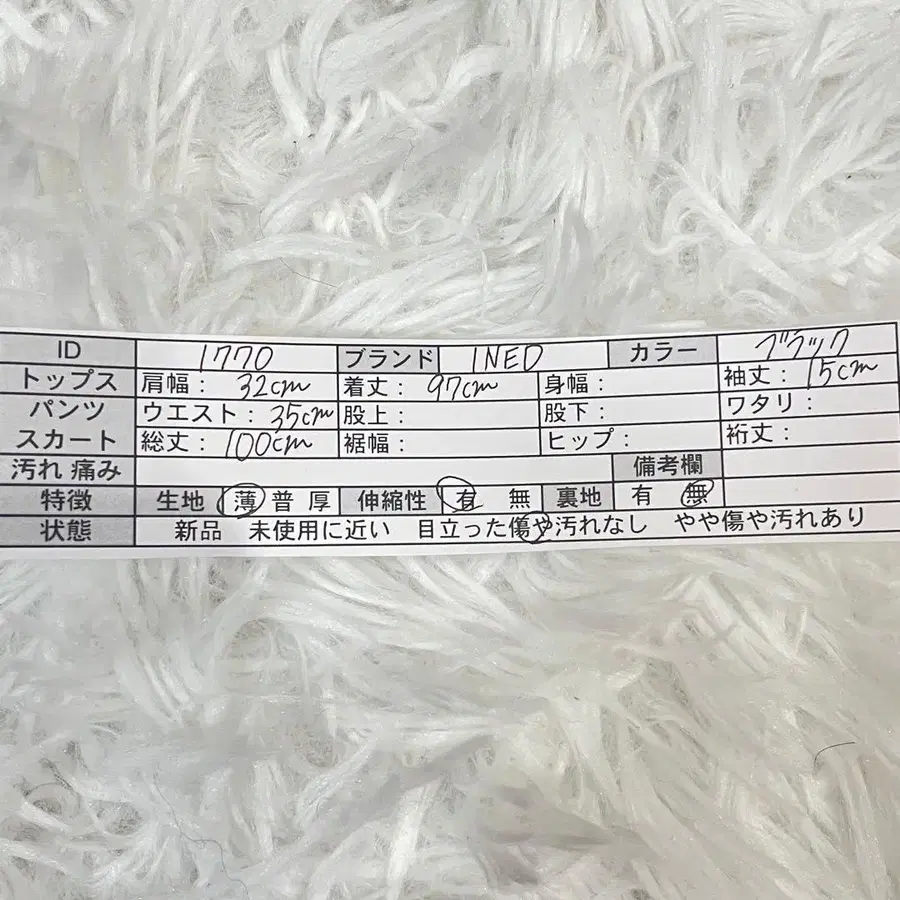 ID 1770 ブランド INED カラー ブラック
トップス 肩幅： 32cm 着丈： 97cm 身幅： 袖丈： 15cm
パンツ ウエスト： 35cm 股上： 股下： ワタリ：
スカート 総丈： 100cm 裾幅： ヒップ： 裄丈：
汚れ 痛み 備考欄
特徴 生地 薄 普 厚 伸縮性 有 無 裏地 有 無
状態 新品 未使用に近い 目立った傷や汚れなし やや傷や汚れあり